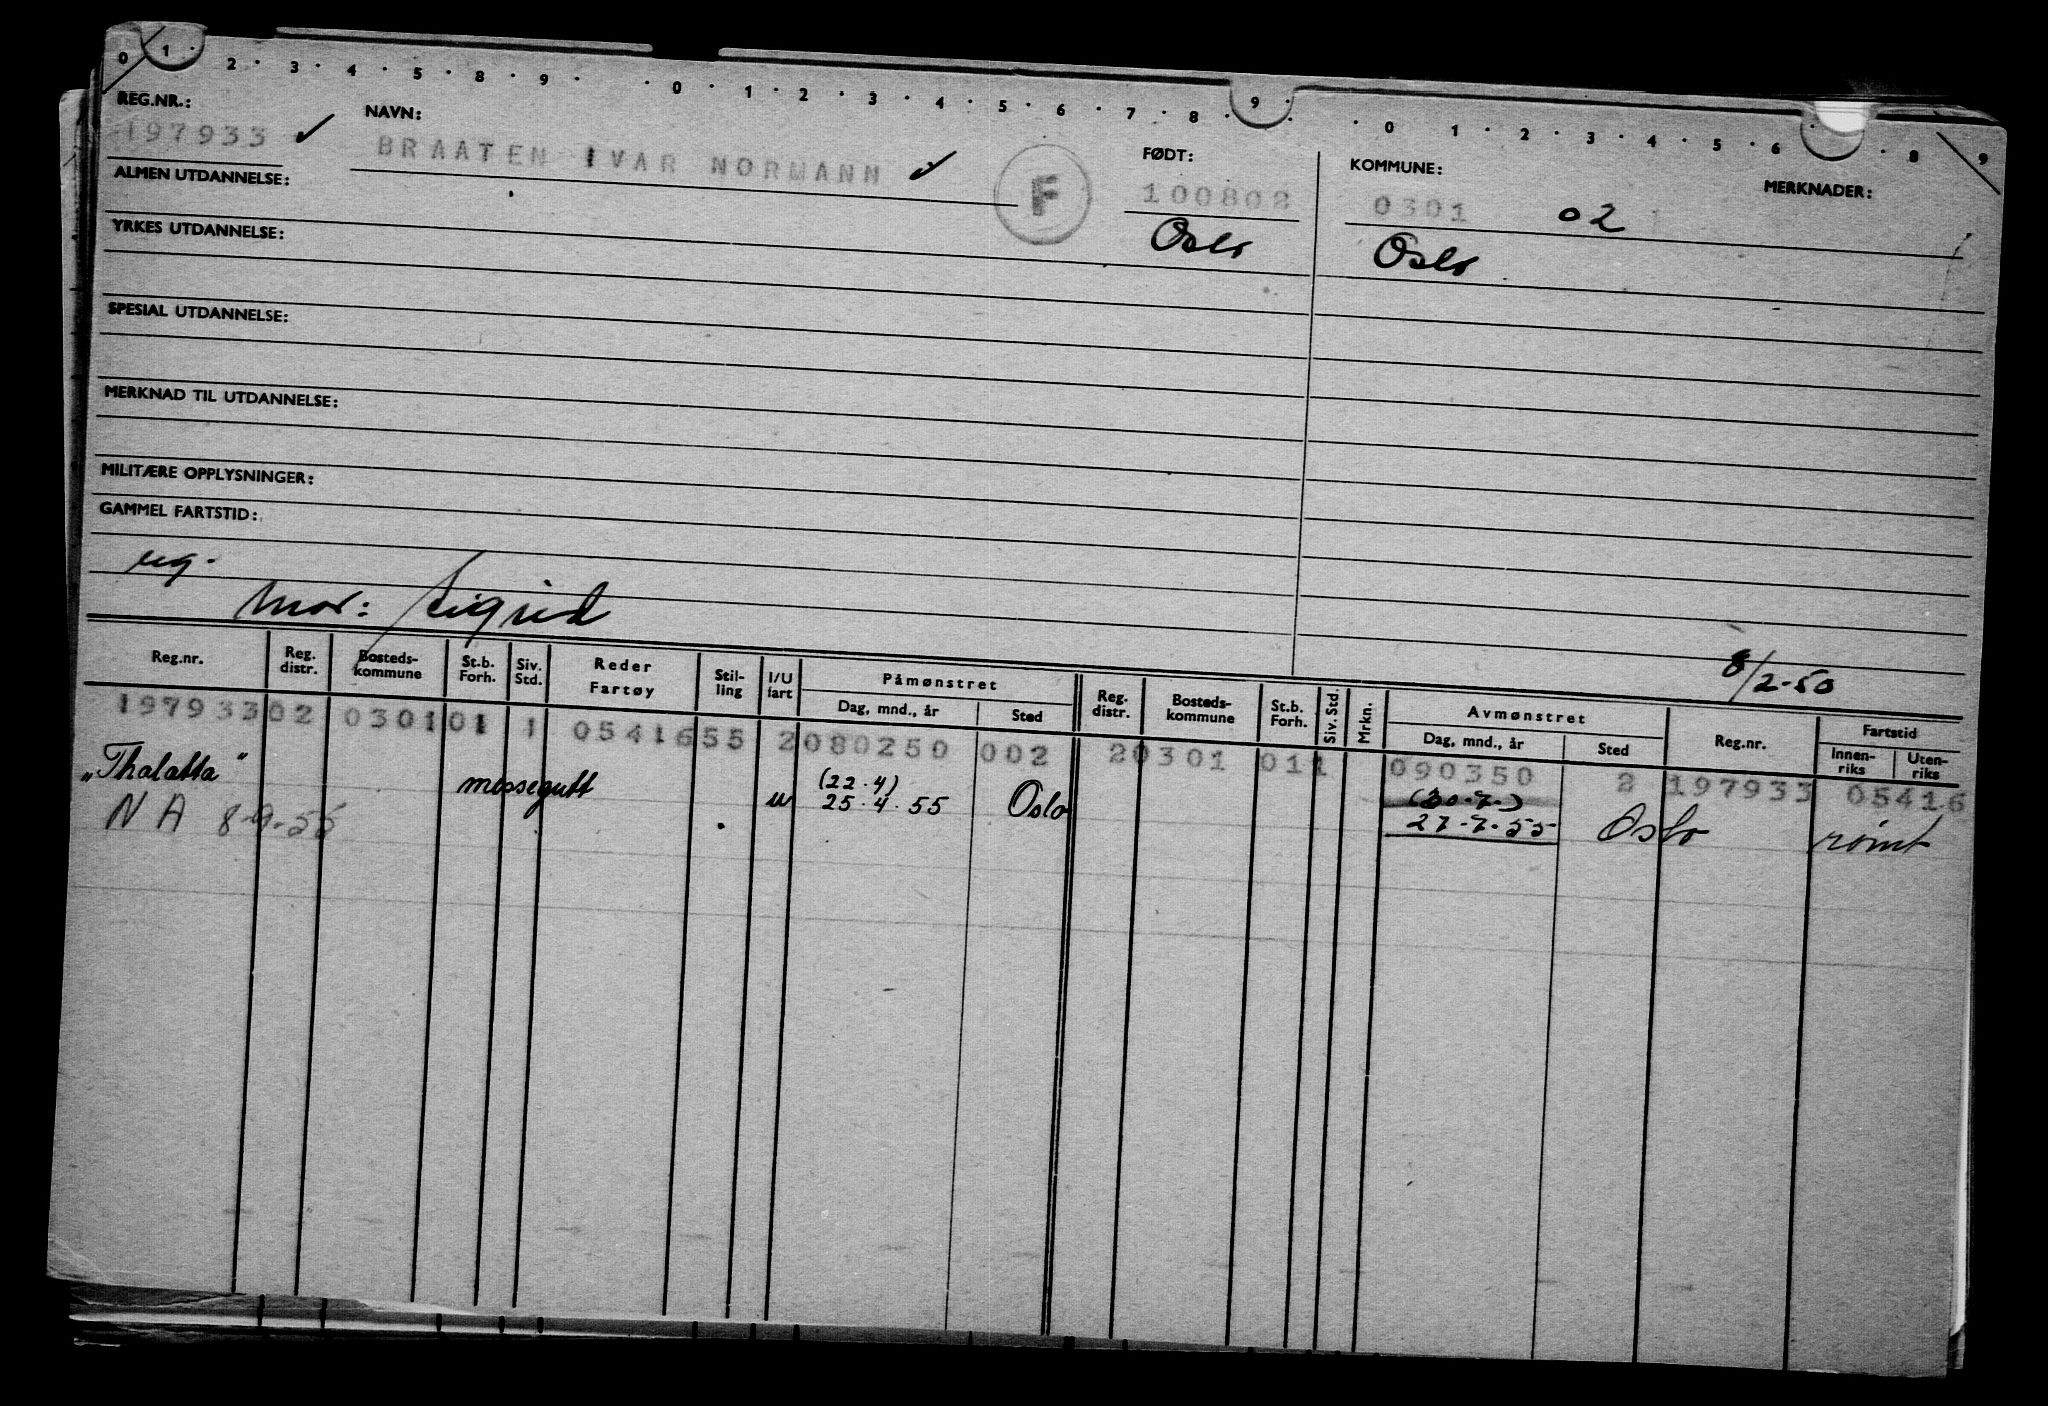 0 1 · 2 · 3 · 4 · 5 · 8 · 9 · · 0 · 1 · 2 · 3 · 4 · 5 · 6 · 7 · 8 · 9 · · 0 1 · 2 · 3 · 4 · 5 · 6 · · 8 · 9
REG.NR.: NAVN: FØDT: KOMMUNE: MERKNADER:
197933 ✓ BRAATEN IVAR NORMANN ✓ F 100802 0301 02
Oslo Oslo
ALMEN UTDANNELSE:
YRKES UTDANNELSE:
SPESIAL UTDANNELSE:
MERKNAD TIL UTDANNELSE:
MILITÆRE OPPLYSNINGER:
GAMMEL FARTSTID:
ug.
Mor: Sigrid
8/2-50
Reg.nr. Reg. distr. Bosteds-kommune St.b. Forh. Siv. Std. Reder Fartøy Stil-ling I/U fart Påmønstret Dag, mnd., år Sted Reg. distr. Bosteds-kommune St.b. Forh. Siv. Std. Mrkn. Avmønstret Dag, mnd., år Sted Reg.nr. Fartstid Innen-riks Uten-riks
197933 02 0301 01 1 0541655 2 080250 002 2 0301 01 1 090350 2 197933 05416
„Thalatta" messegutt u (22.4) 25.4.55 Oslo (20.7.) 27.7.55 Oslo rømt
NA 8-9-55